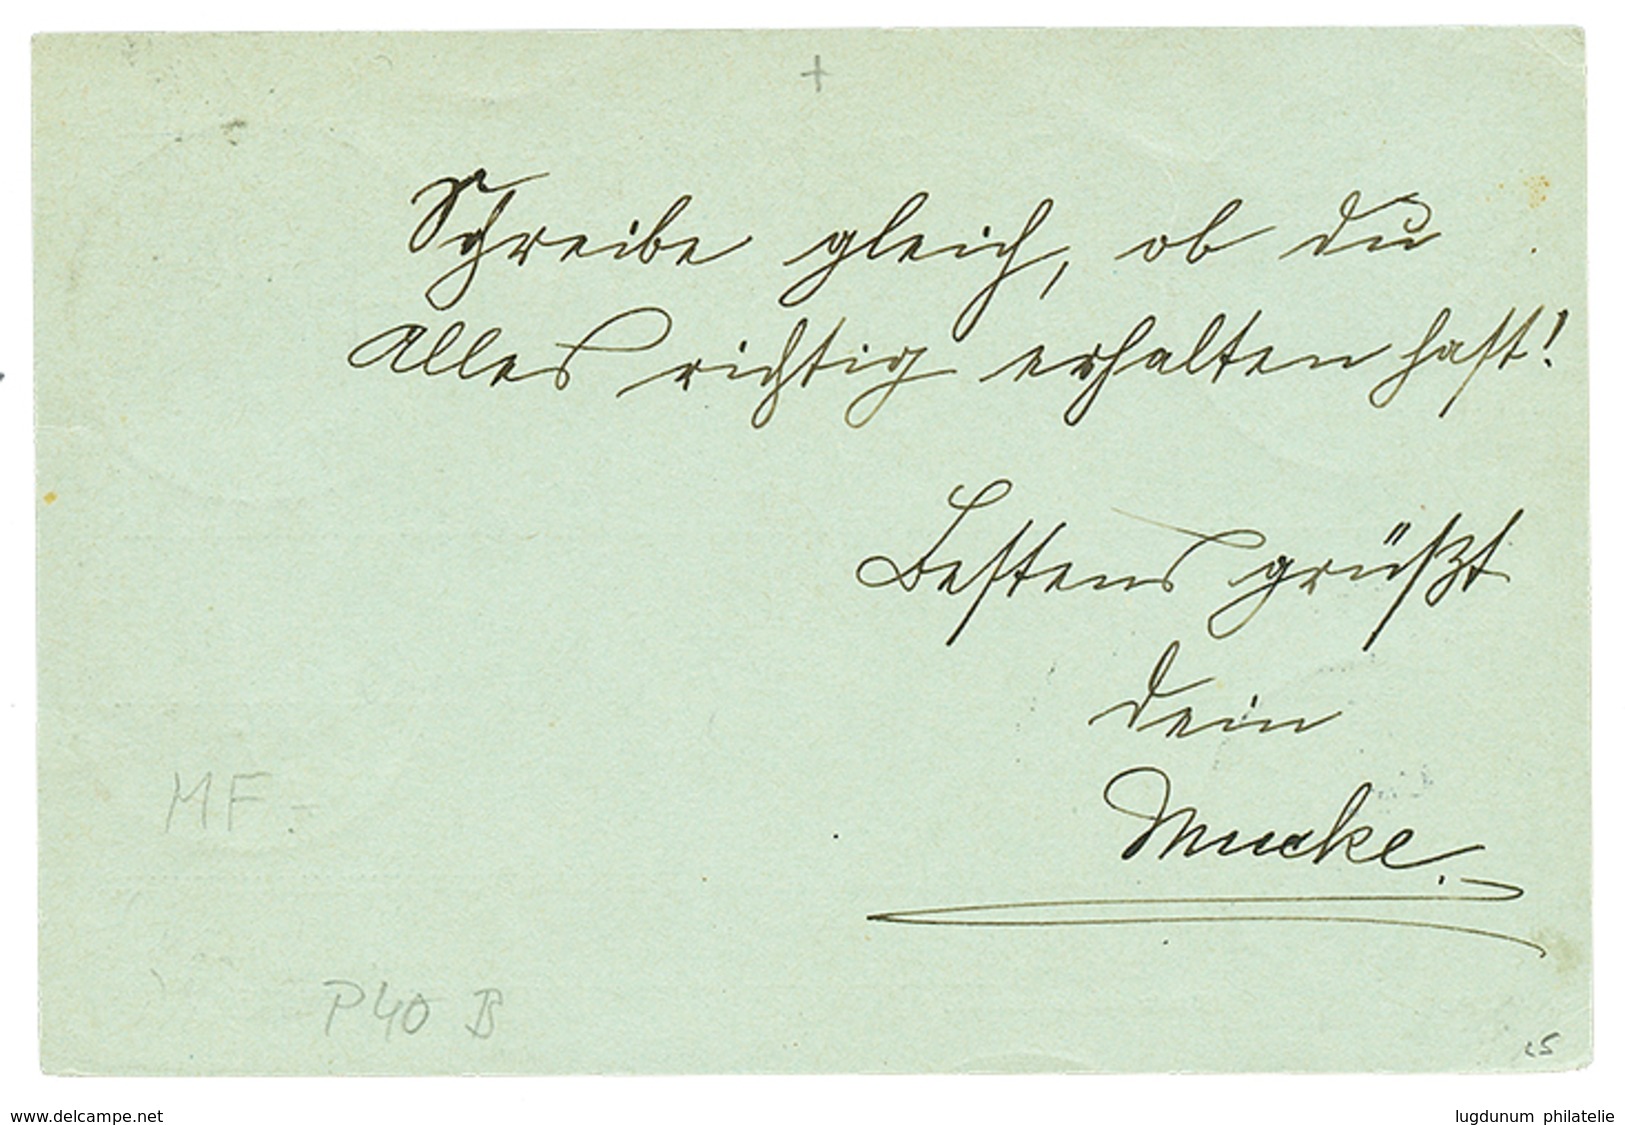 +
Schreibe gleich, ob du
Alles richtig erhalten hast!
Bestens grüßt
dein
Mucke.
MF-
P40 B
25
www.delcampe.net
lugdunum philatelie